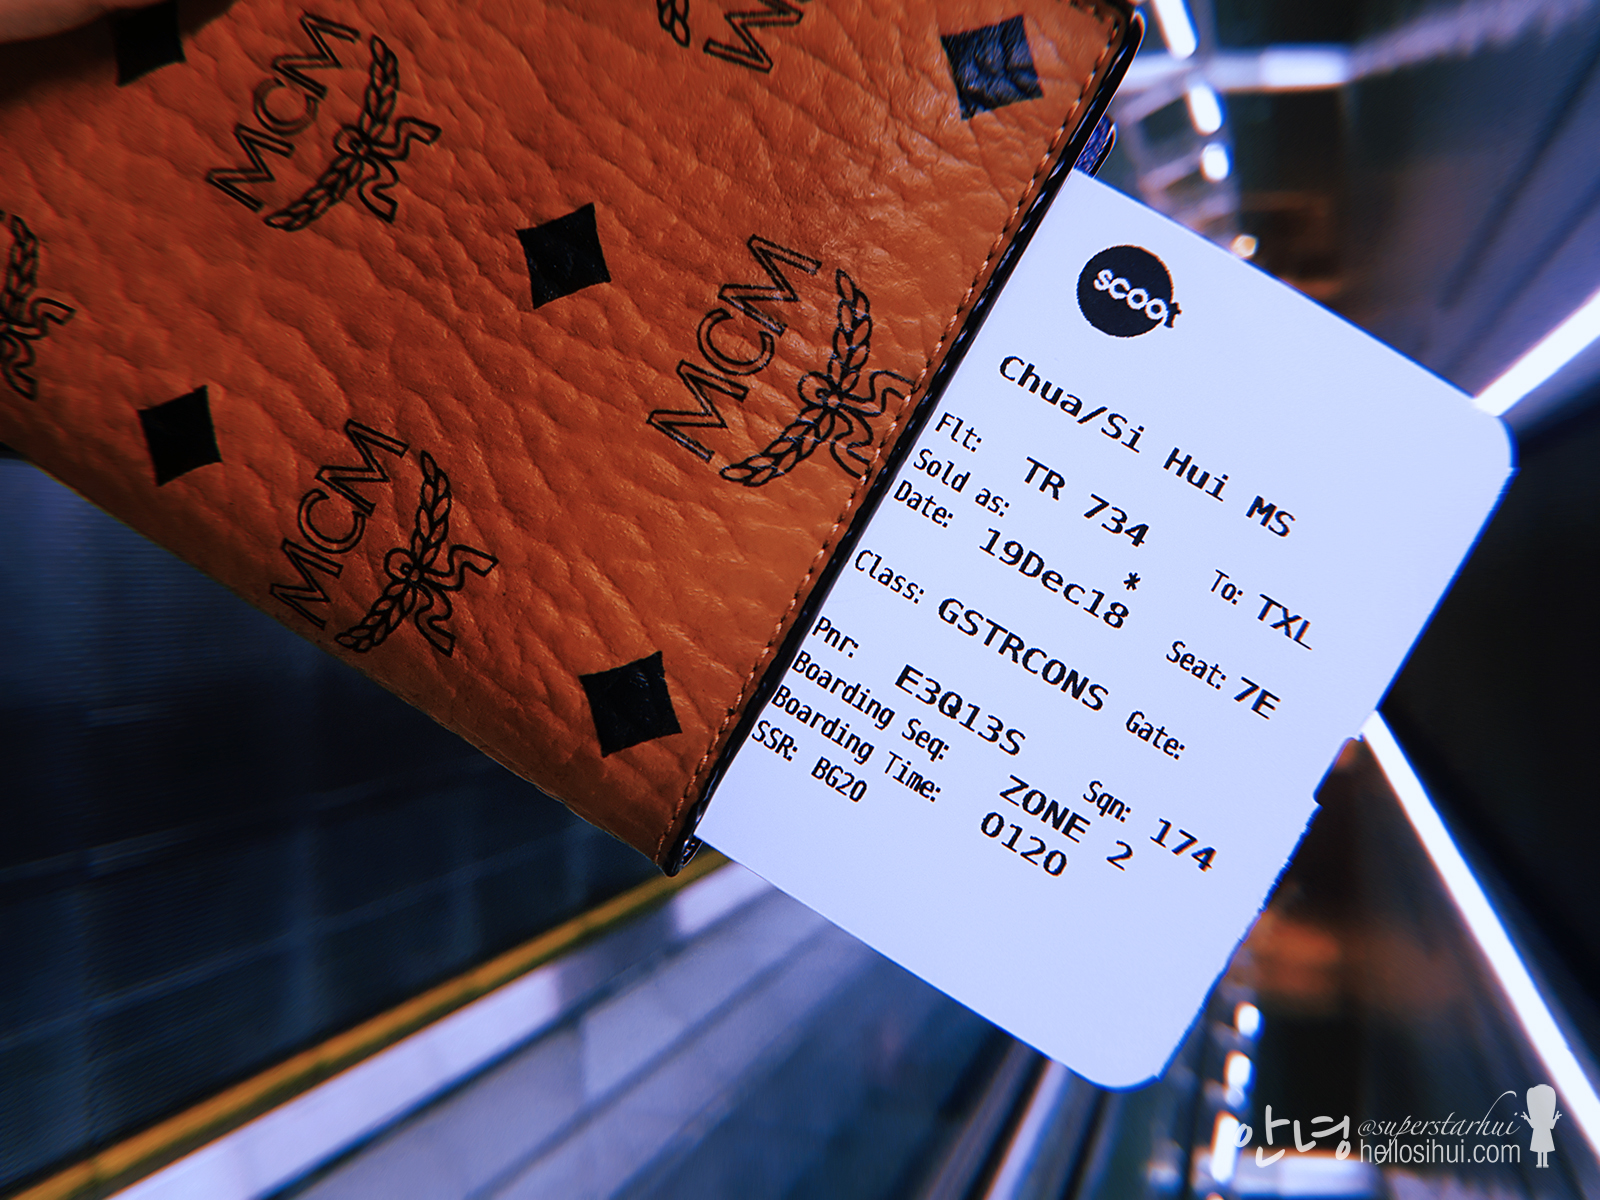 MCM
MCM
MCM
MCM
scoot
Chua/Si Hui MS
Flt: TR 734 To: TXL
Sold as: *
Date: 19Dec18 Seat: 7E
Class: GSTRCONS Gate:
Pnr: E3Q13S Sqn: 174
Boarding Seq: ZONE 2
Boarding Time: 0120
SSR: BG20
안녕 @superstarhui
hellosihui.com